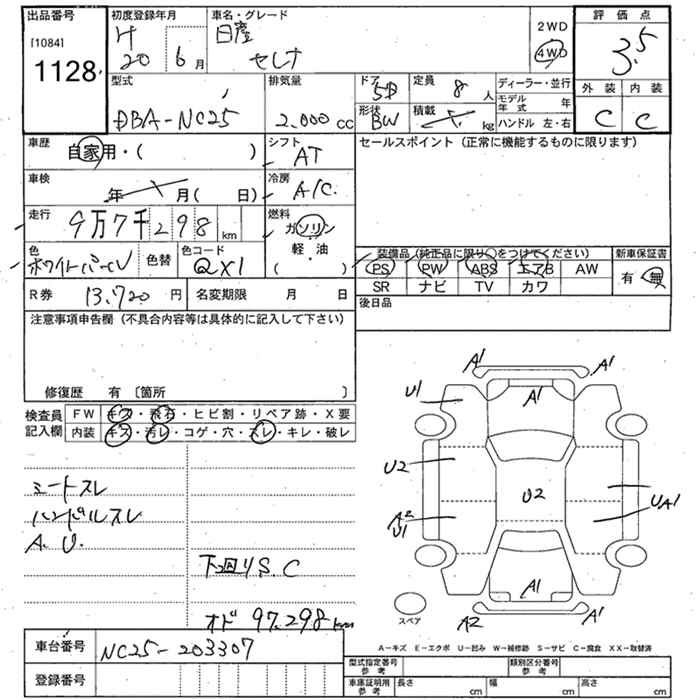 出品番号 初度登録年月 車名・グレード 評価点
[1084] H 日産 2WD
1128 20 6月 セレナ 4WD 3.5
型式 排気量 ドア 5D 定員 8人 ディーラー・並行 外装 内装
DBA-NC25 2.000cc 形状 BW 積載 kg モデル年式 年 C C
ハンドル 左・右
車歴 自家用・( ) シフト AT セールスポイント (正常に機能するものに限ります)
車検 年 月( 日) 冷房 A/C
走行 9万7千298km 燃料 ガソリン
色 ホワイトパール 色替 色コード QX1 軽・油 ( ) 装備品(純正品に限り○をつけてください) 新車保証書
PS PW ABS エアB AW 有 無
R券 13.720円 名変期限 月 日 SR ナビ TV カワ
注意事項申告欄 (不具合内容等は具体的に記入して下さい) 後日品
修復歴 有 〔箇所 〕
検査員 FW キズ・飛石・ヒビ割・リペア跡・X要
記入欄 内装 キズ・汚レ・コゲ・穴・スレ・キレ・破レ
A1 A1
A1
U1
U2
U2
UA1
A2
U1
シートスレ
ハンドルスレ
A.U.
下廻りS.C
A1
A2 A1
スペア
オド 97.298km
車台番号 NC25-203307
A-キズ E-エクボ U-凹み W-補修跡 S-サビ C-腐食 XX-取替済
登録番号 型式指定番号 参考 類別区分番号 参考
車庫証明用 参考 長さ cm 幅 cm 高さ cm